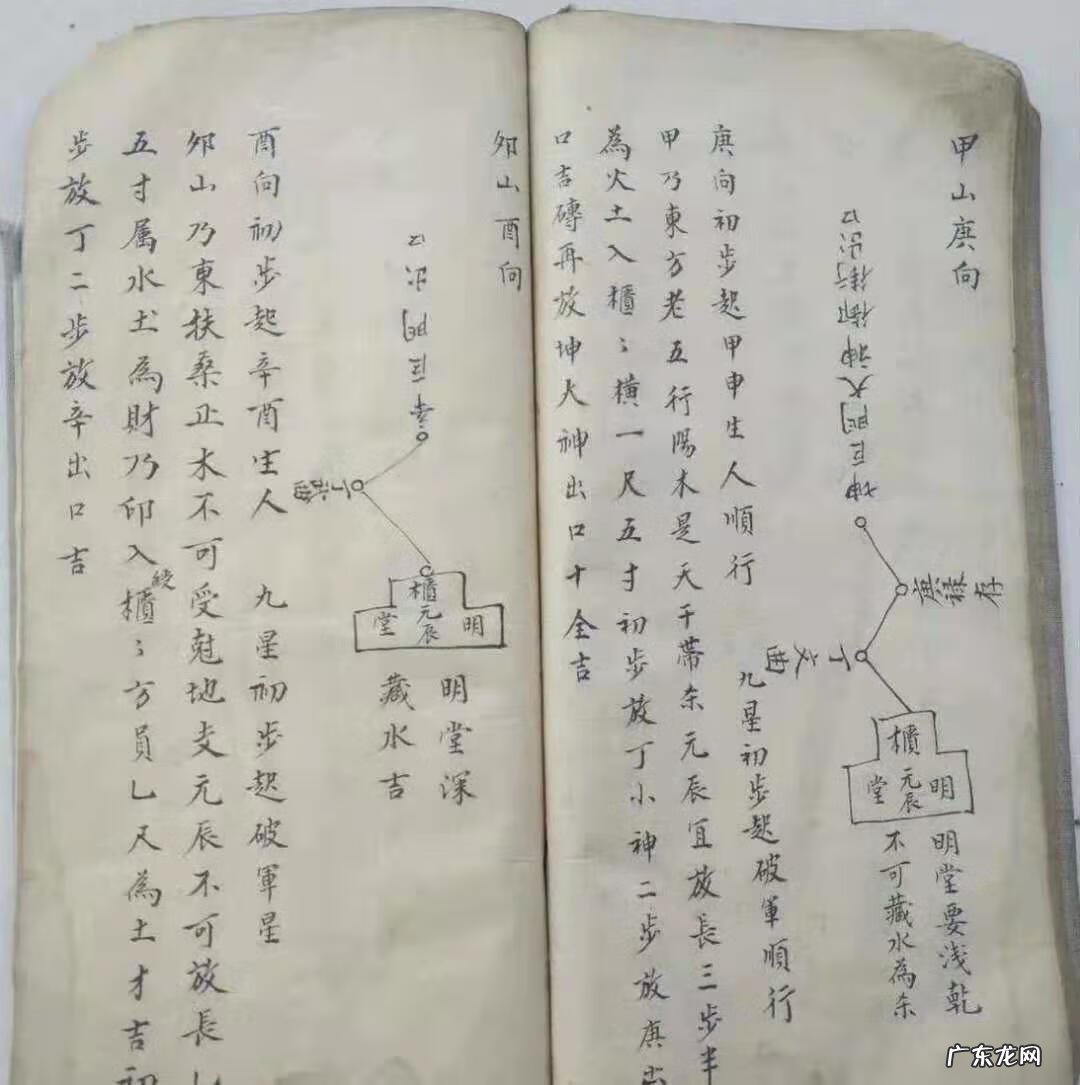 甲山庚向
坤巨門大神御街出口
庚祿存
丁文曲
櫃
明元辰堂
明堂要浅乾
不可藏水為
庚向初步起甲申生人順行
九星初步起破軍順行
甲乃東方老五行陽木是天干帶元辰宜放長三步半
為火土入櫃〻橫一尺五寸初步放丁小神二步放庚出
口吉磚再放坤大神出口十全吉
夘山酉向
辛巨門出口
丁
櫃
明元辰堂
明堂深
藏水吉
酉向初步起辛酉生人 九星初步起破軍星
夘山乃東扶桑正木不可受尅地支元辰不可放長
五寸属水土為財乃卯入櫃〻方員乚尺為土才吉初
步放丁二步放辛出口吉
广东龙网